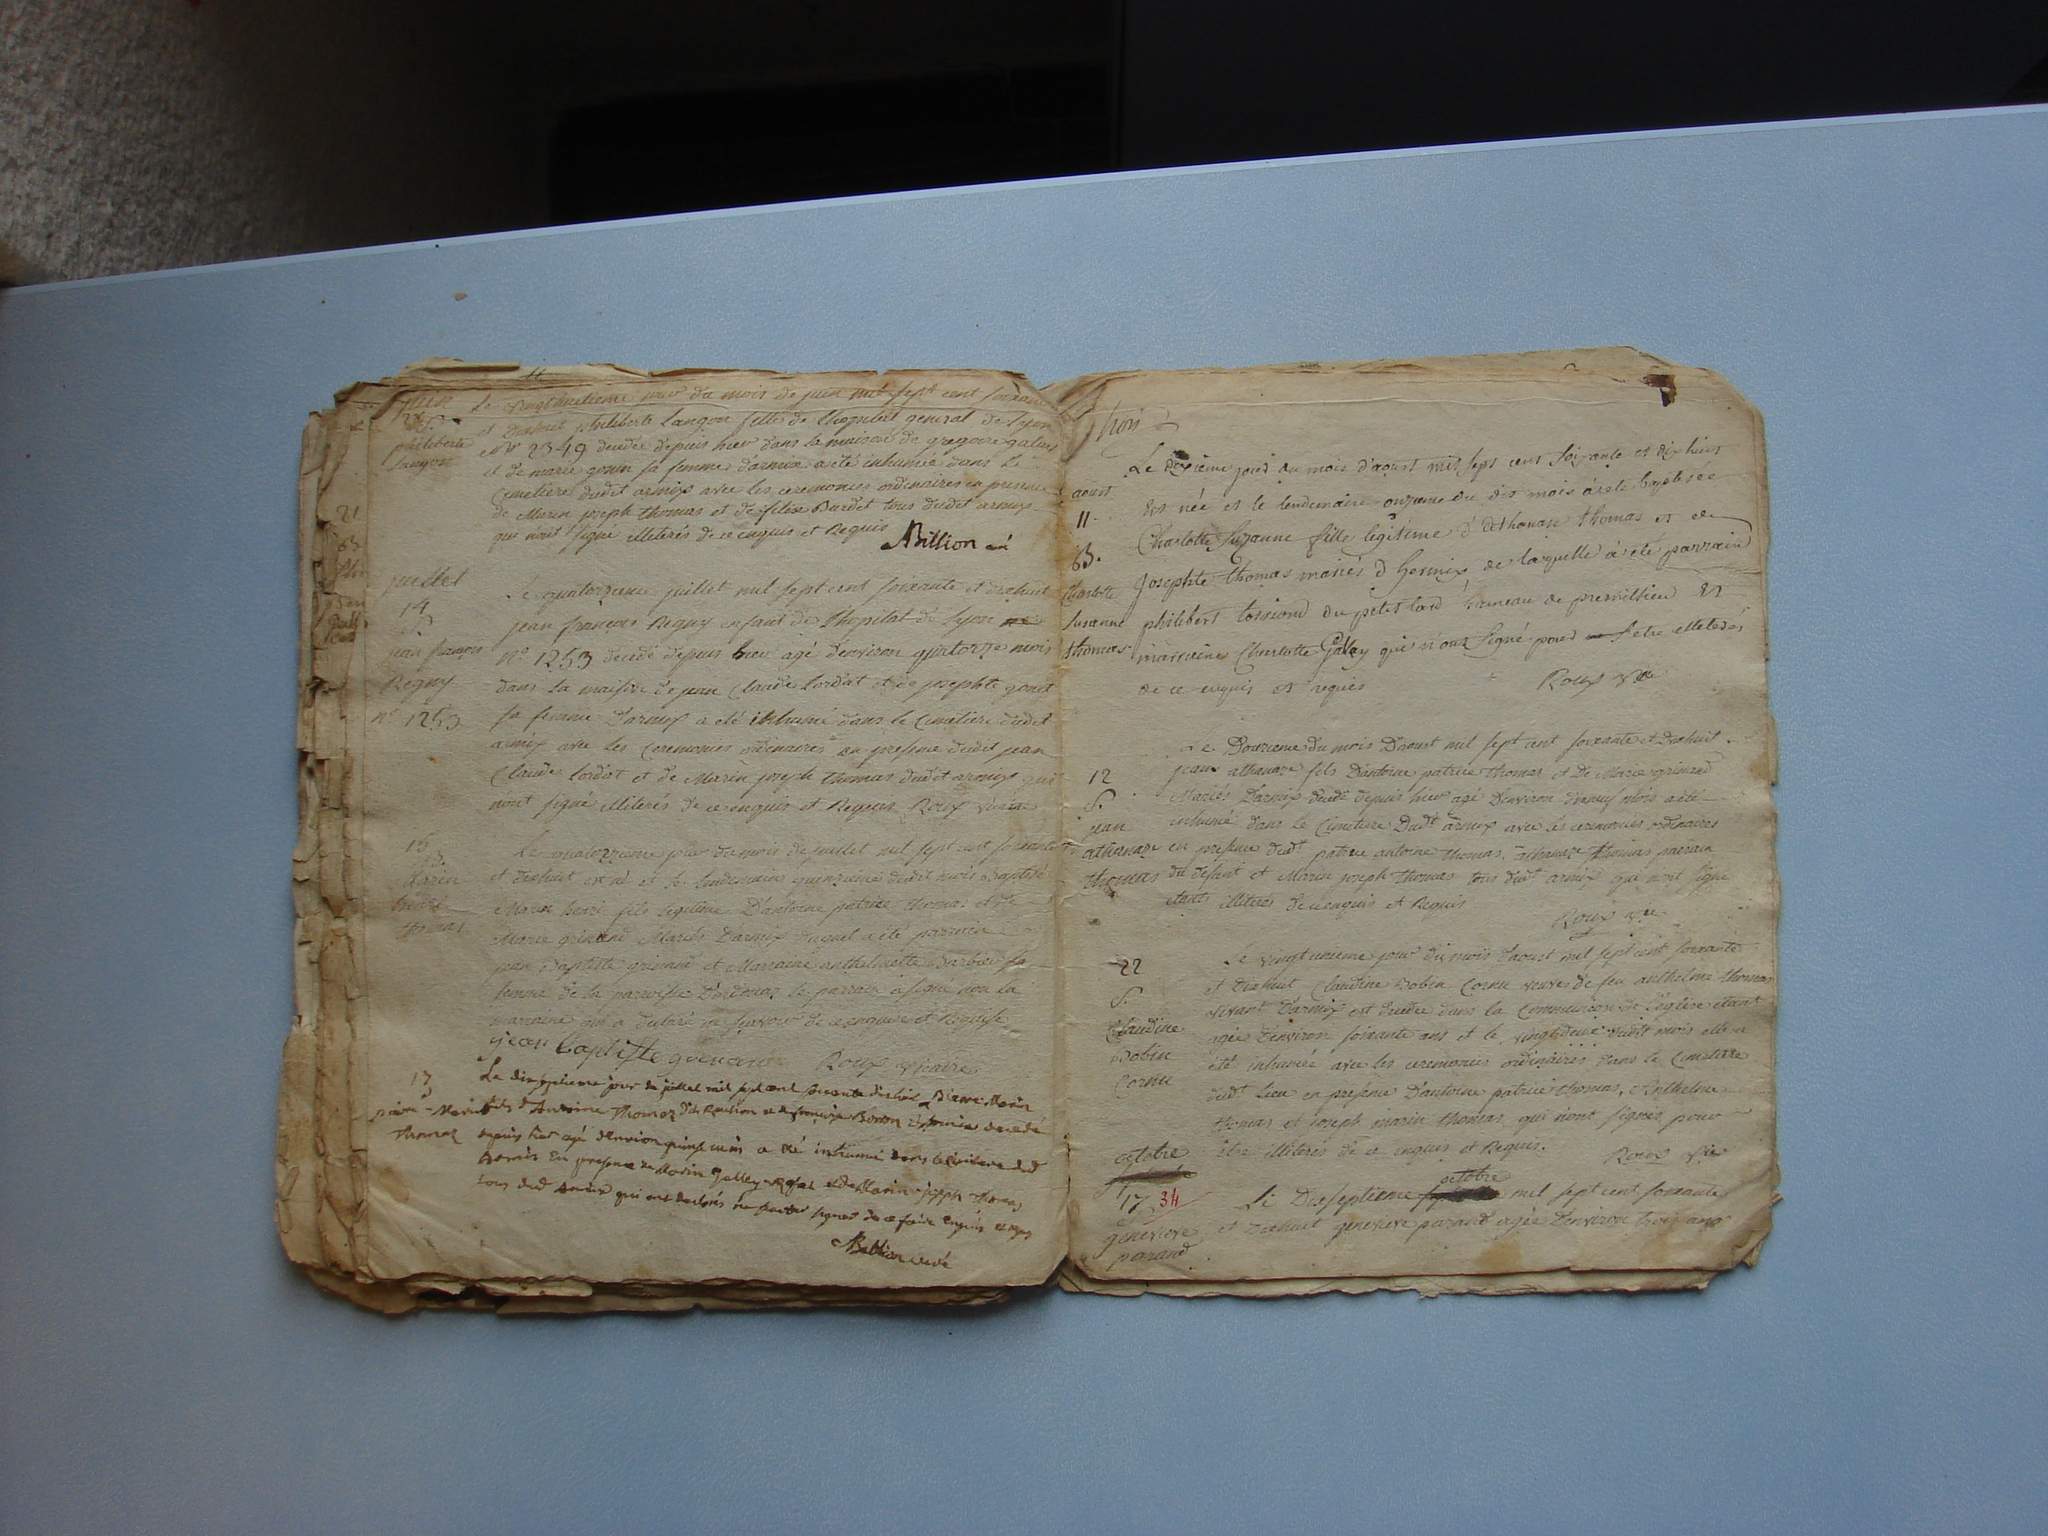 juin
28
S.
philiberte
Langon
Le vingthuitieme jour du mois de juin mil sept cent soixante
et dixhuit philiberte Langon fille de l'hopital general de Lyon
N° 2349 decedée depuis hier dans la maison de gregoire
et de marie gonin sa femme d'armix a été inhumée dans le
Cimetiere dudit armix avec les ceremonies ordinaires en presence
de Marin joseph thomas et de felix Burdet tous dudit armix
qui n'ont signé illiterés de ce enquis et Requis
Billion curé
juillet
14
jean françois
Reguy
n° 1253
Le quatorzieme juillet mil sept cent soixante et dixhuit
jean françois Reguy enfant de l'hopital de Lyon
N° 1253 decedé depuis hier agé d'environ quatorze mois
dans la maison de jean Claude Lordat et de josephte gonet
sa femme D'armix a été inhumé dans le Cimetiere dudit
armix avec les Ceremonies ordinaires en presence dudit jean
Claude Lordat et de Marin joseph thomas dudit armix qui
n'ont signé illiterés de ce enquis et Requis Roux vicaire
15
B.
Marin
henri
thomas
Le quatorzieme jour du mois de juillet mil sept cent soixante
et dixhuit est né et le lendemain quinzieme dudit mois Baptisé
Marin henri fils legitime D'antoine patrice thomas et de
Marie grinand Mariés D'armix duquel a été parrain
jean Baptiste grinand et Marraine anthelmette Barbier sa
femme de la paroisse D'ordonaz le parrain a signé non la
marraine qui a declaré ne sçavoir de ce enquise et Requise
jean baptiste Roux vicaire
17
pierre Marin
Thomaz
Le dixseptieme jour de juillet mil sept cent soixante dixhuit Pierre Marin
fils d'Antoine Thomaz et de françoise d'Armix decedé
depuis hier agé d'environ quinze mois a été inhumé dans le Cimetiere dud
Armix En presence de Marin Galley et de Marin joseph Thomaz
tous dud Armix qui ont declarés ne savoir signer de ce faire Enquis et requis
Billion curé
trois
aoust
11
B.
Charlotte
Suzanne
thomas
Le dixieme jour du mois d'aoust mil sept cent soixante et dix huit
est née et le lendemain onzieme du dit mois a été baptisée
Charlotte Suzanne fille legitime d'athanase thomas et de
josephte thomas mariés d'hermix de laquelle a été parrain
philibert du petit hameau de premillieu et
marraine Charlotte Galley qui n'ont signé pour etre illeterés
de ce enquis et requis Roux vre
12
S.
jean
athanaze
thomas
Le Douzieme du mois D'aoust mil sept cent soixante et Dixhuit
jean athanaze fils D'antoine patrice thomas et De Marie grinand
Mariés D'armix decedé depuis hier agé D'environ dixneuf mois a été
inhumé dans le Cimetiere Dudt armix avec les ceremonies ordinaires
en presence dudt patrice antoine thomas, athanaze thomas parrain
du defunt et Marin joseph thomas tous dudt armix qui n'ont signé
étants illiterés de ce enquis et Requis
Roux vre
22
S.
Claudine
Bobin
Cornu
Le vingtunieme jour du mois D'aoust mil sept cent soixante
et Dixhuit Claudine Bobin Cornu veuve de feu anthelme thomas
vivant D'armix est decedée dans la Communion de l'eglise étant
agée D'environ soixante ans et le vingtdeux dudit mois elle a
été inhumée avec les ceremonies ordinaires dans le Cimetiere
dudt Lieu en presence D'antoine patrice thomas, anthelme
thomas et joseph marin thomas qui n'ont signés pour
être illiterés de ce enquis et Requis. Roux vre
octobre
17 34
genevieve
parand
octobre
Le Dixseptieme mil sept cent soixante
et Dixhuit genevieve parand agée D'environ trois ans